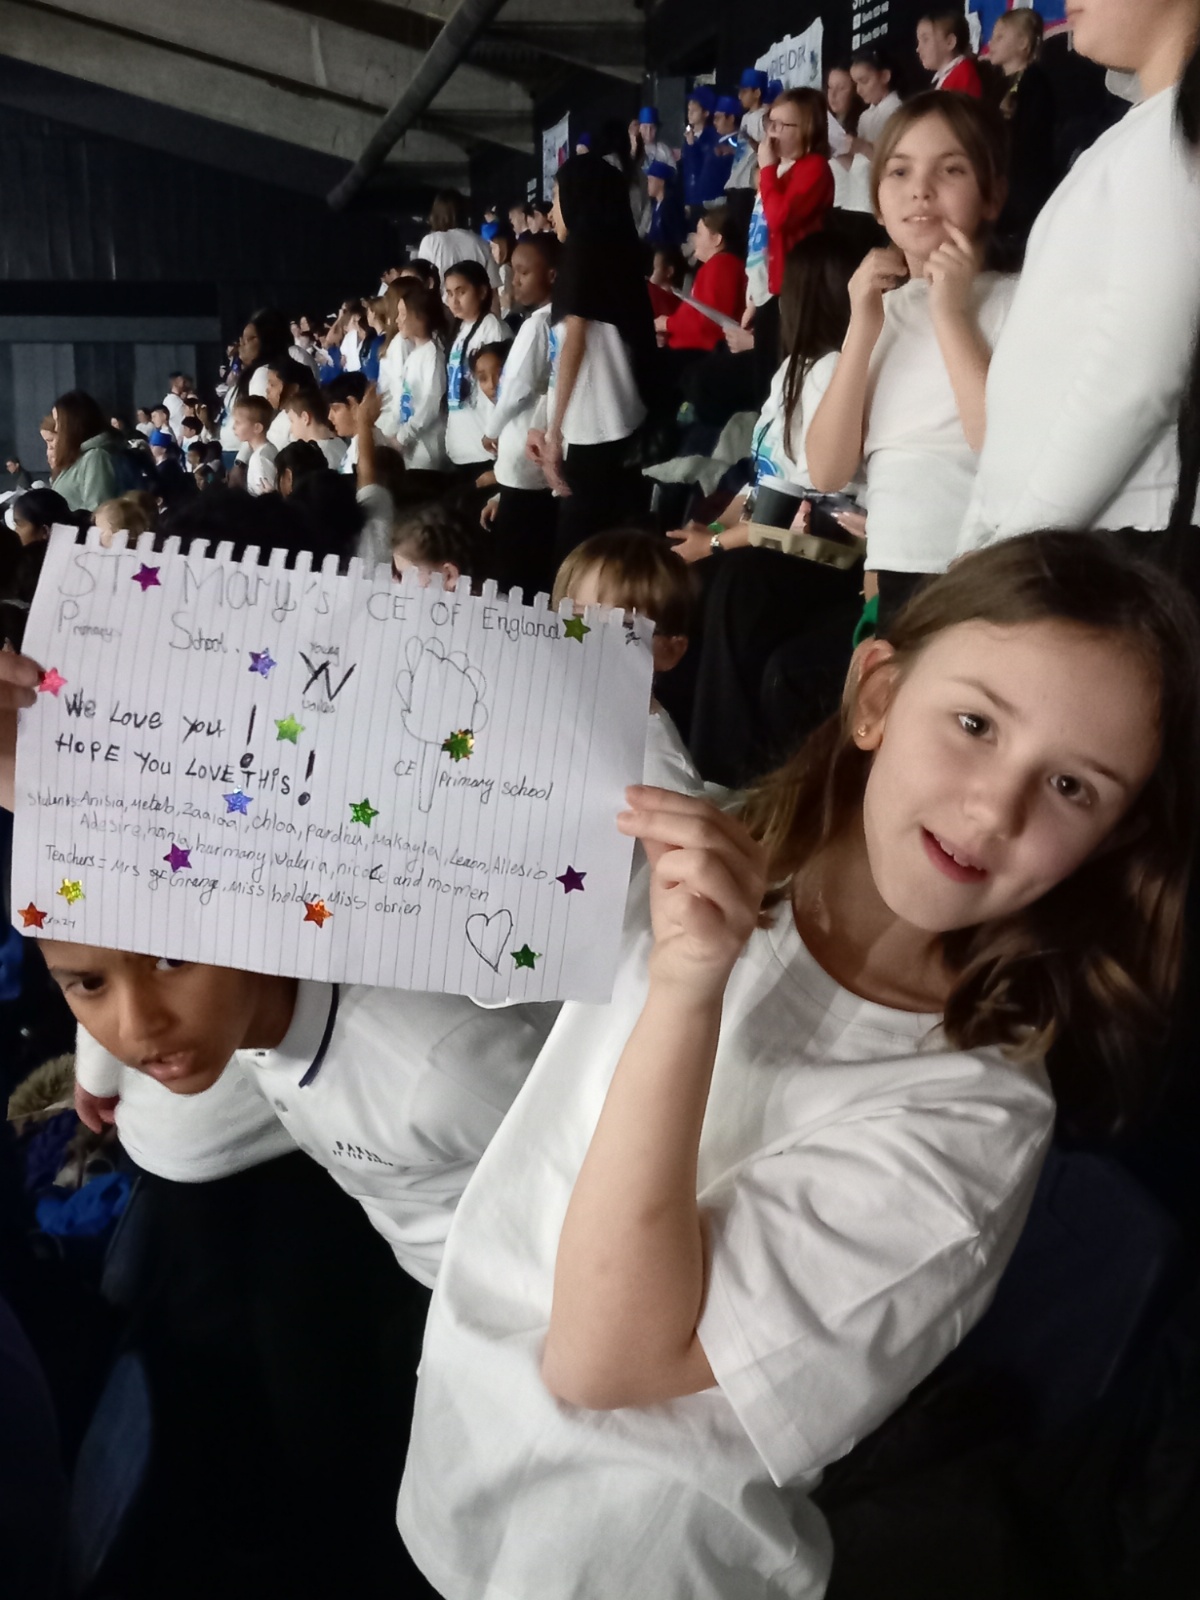 ST Mary's CE OF England
Primary School.
Young
YV
Voices
We Love you !
HOPE YOU LOVE THIS !
CE Primary school
Students: Anisia, Meteb, Zaalaa, chloa, pardhu, Makayla, Leeon, Allesio,
Adesire, hania, harmony, Valeria, nicole and momen
Teachers = Mrs Grange, Miss holder, Miss obrien